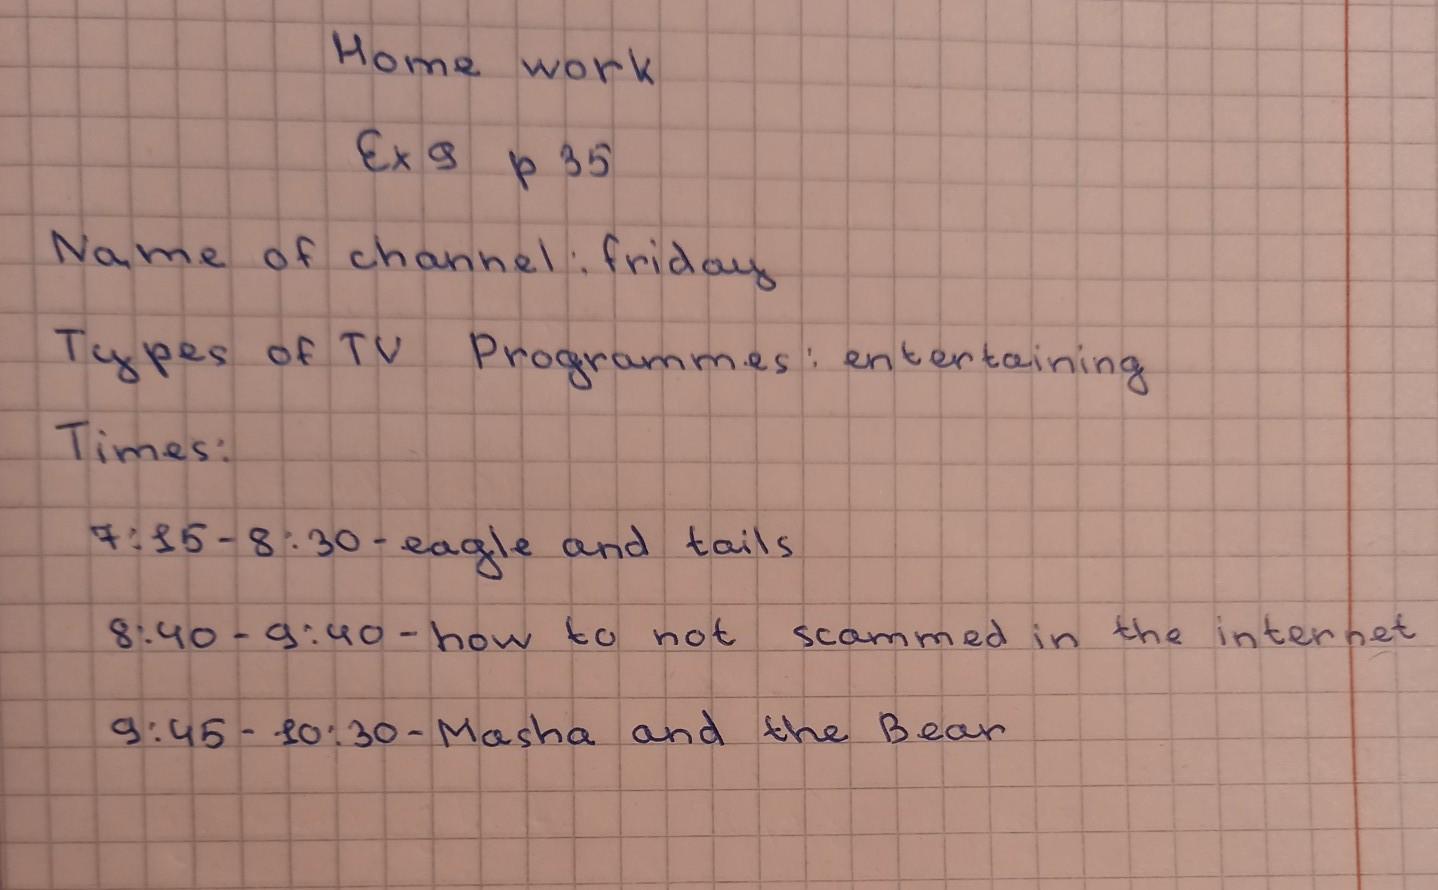 Home work
Ex 9 p 35
Name of channel: friday
Types of TV Programmes: entertaining
Times:
7:15-8:30-eagle and tails
8:40-9:40-how to not scammed in the internet
9:45-10:30-Masha and the Bear